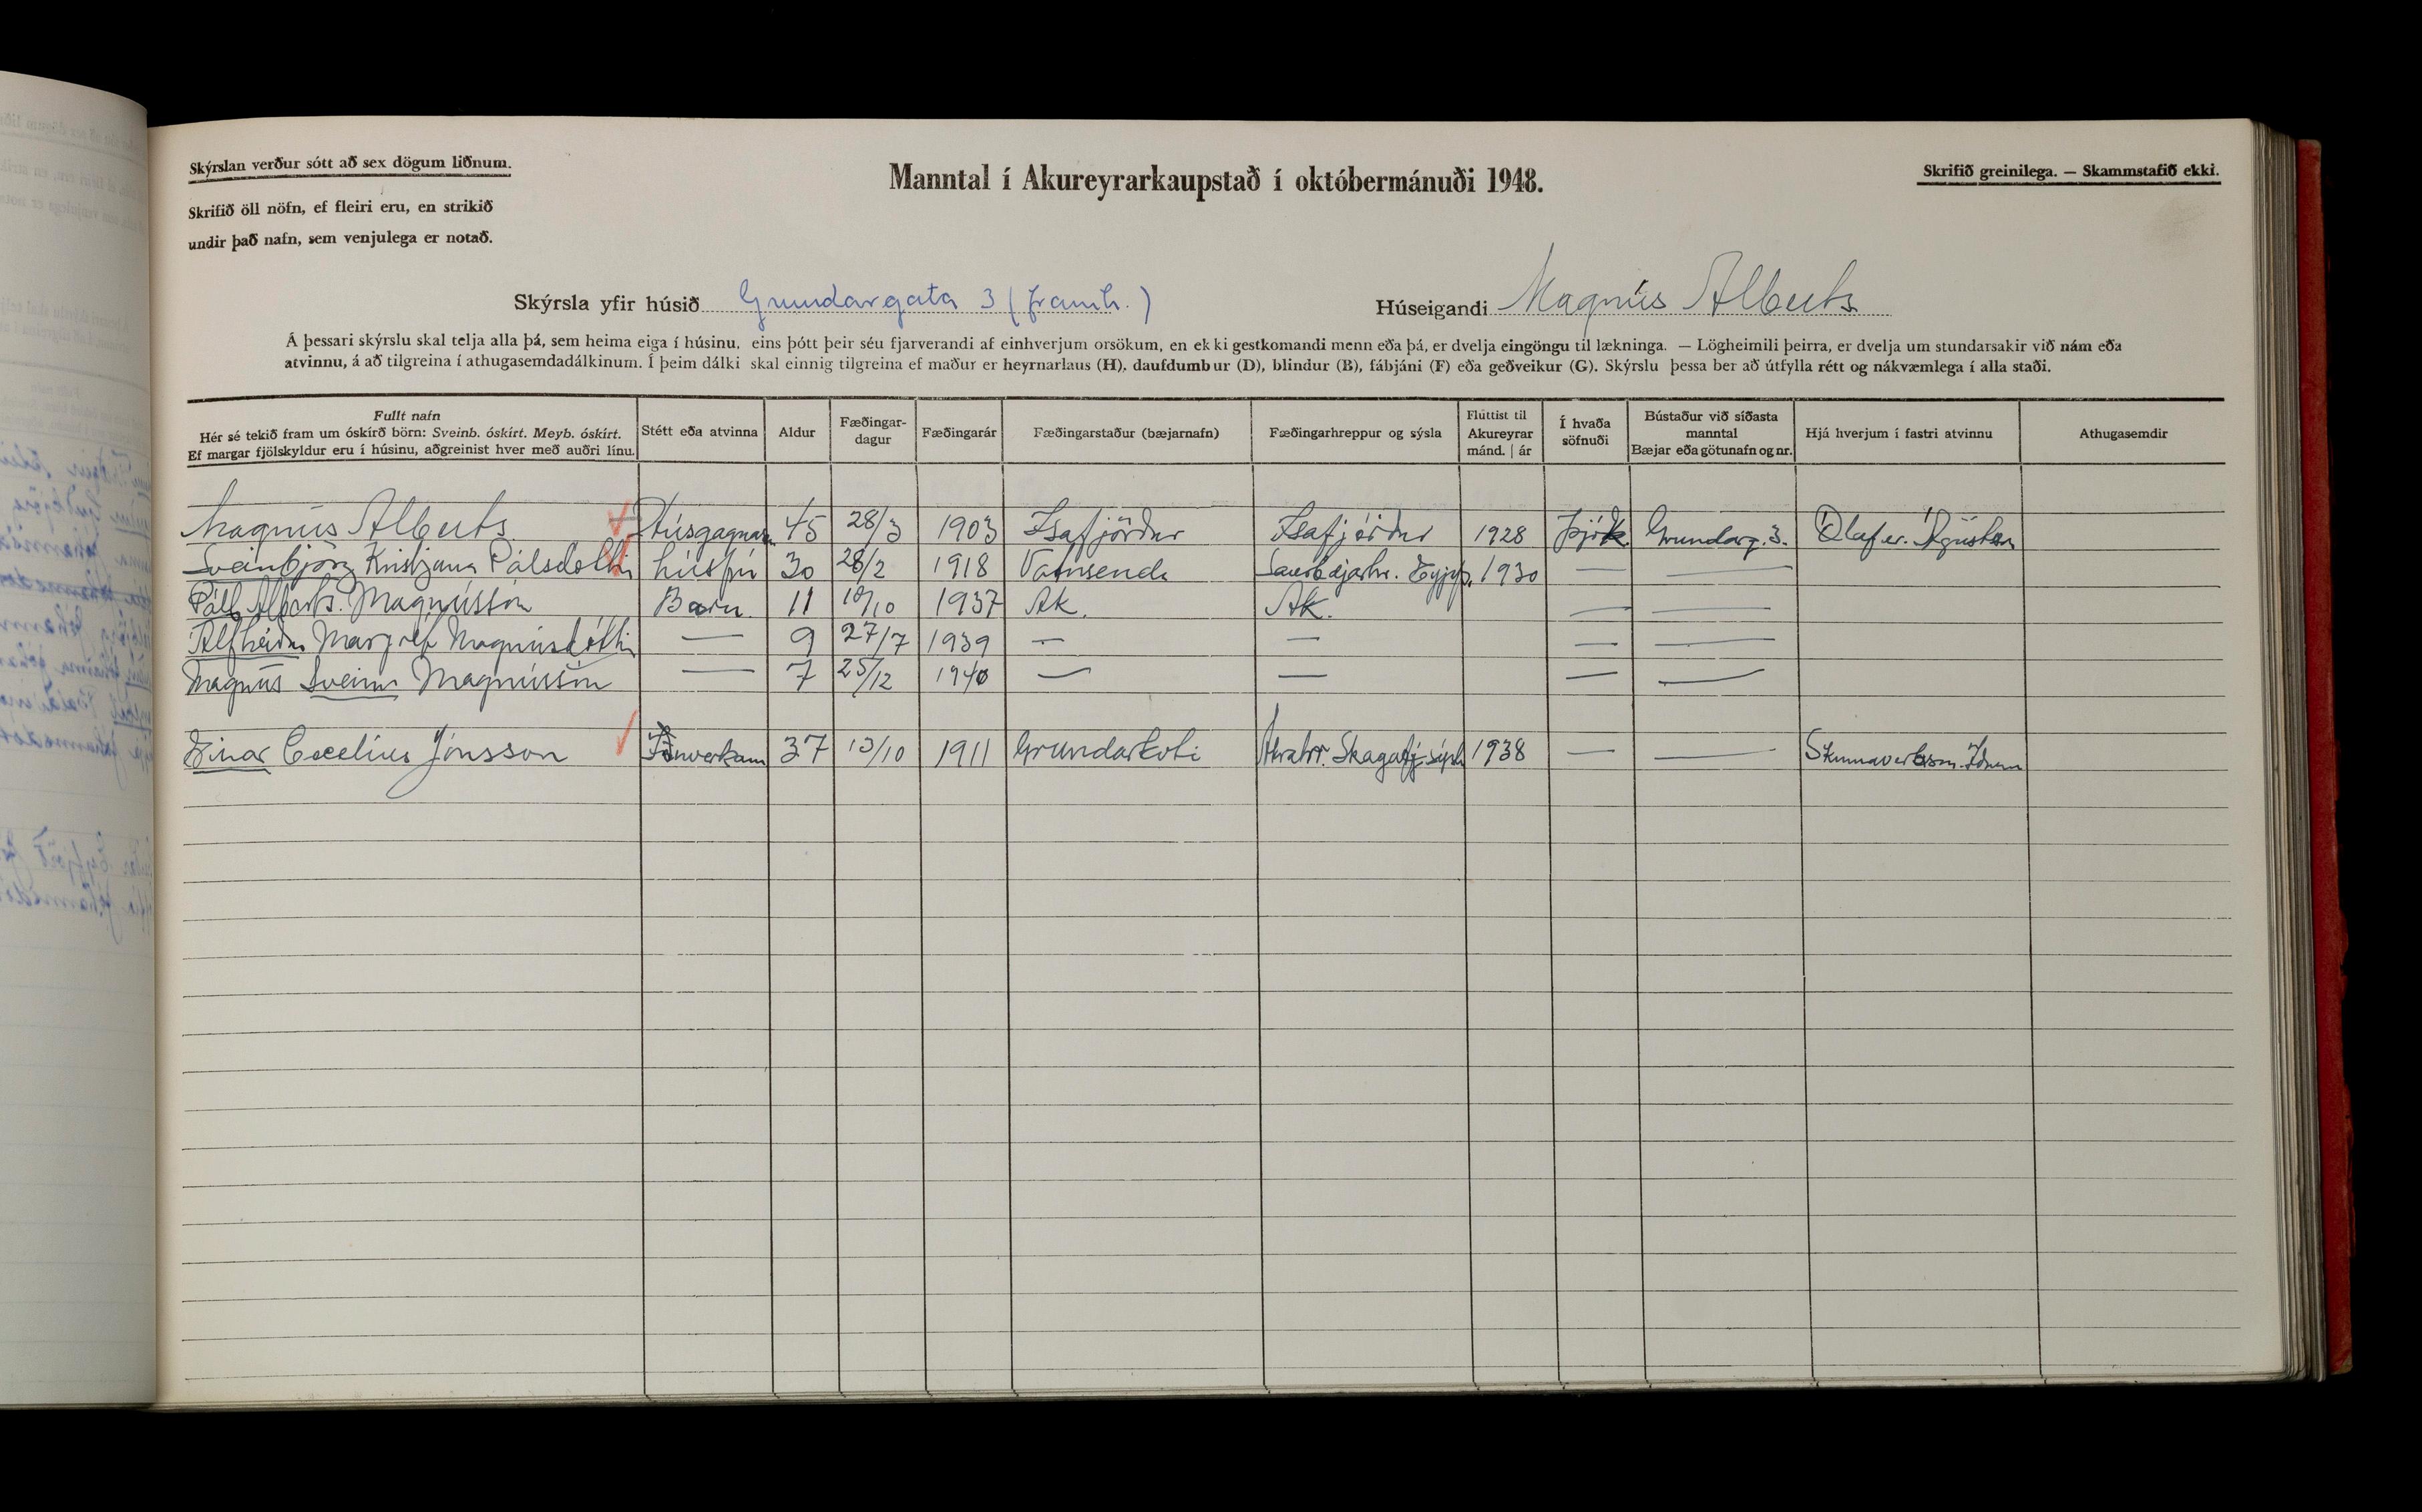 Skýrslan verður sótt að sex dögum liðnum.
Skrifið öll nöfn, ef fleiri eru, en strikið
undir það nafn, sem venjulega er notað.
Manntal í Akureyrarkaupstað í októbermánuði 1948.
Skrifið greinilega. — Skammstafið ekki.
Skýrsla yfir húsið Grundargata 3 (framh.)
Húseigandi Magnús Alberts
Á þessari skýrslu skal telja alla þá, sem heima eiga í húsinu, eins þótt þeir séu fjarverandi af einhverjum orsökum, en ekki gestkomandi menn eða þá, er dvelja eingöngu til lækninga. — Lögheimili þeirra, er dvelja um stundarsakir við nám eða
atvinnu, á að tilgreina í athugasemdadálkinum. Í þeim dálki skal einnig tilgreina ef maður er heyrnarlaus (H), daufdumbur (D), blindur (B), fábjáni (F) eða geðveikur (G). Skýrslu þessa ber að útfylla rétt og nákvæmlega í alla staði.
Fullt nafn
Hér sé tekið fram um óskírð börn: Sveinb. óskírt. Meyb. óskírt.
Ef margar fjölskyldur eru í húsinu, aðgreinist hver með auðri línu.
Stétt eða atvinna
Aldur
Fæðingar-
dagur
Fæðingarár
Fæðingarstaður (bæjarnafn)
Fæðingarhreppur og sýsla
Flúttist til
Akureyrar
mánd. | ár
Í hvaða
söfnuði
Bústaður við síðasta
manntal
Bæjar eða götunafn og nr.
Hjá hverjum í fastri atvinnu
Athugasemdir
Magnús Alberts Húsgagnasm 45 28/3 1903 Ísafjörður Ísafjörður 1928 Þjóðk. Grundarg. 3. Ólafur Ágústson
Sveinbjörg Kristjana Pálsdóttir húsfrú 30 28/2 1918 Vatnsenda Saurbæjarhr. Eyjafj. 1930 — —
Páll Alberts. Magnússon Barn 11 10/10 1937 Ak. Ak. — —
Álfheiður Margrét Magnúsdóttir — 9 27/7 1939 — — — —
Magnús Sveinn Magnússon — 7 25/12 1940 — — — —
Einar Cecelíus Jónsson 37 13/10 1911 Grundarkoti Akrahr. Skagafj-sýsla 1938 — — Iðunn